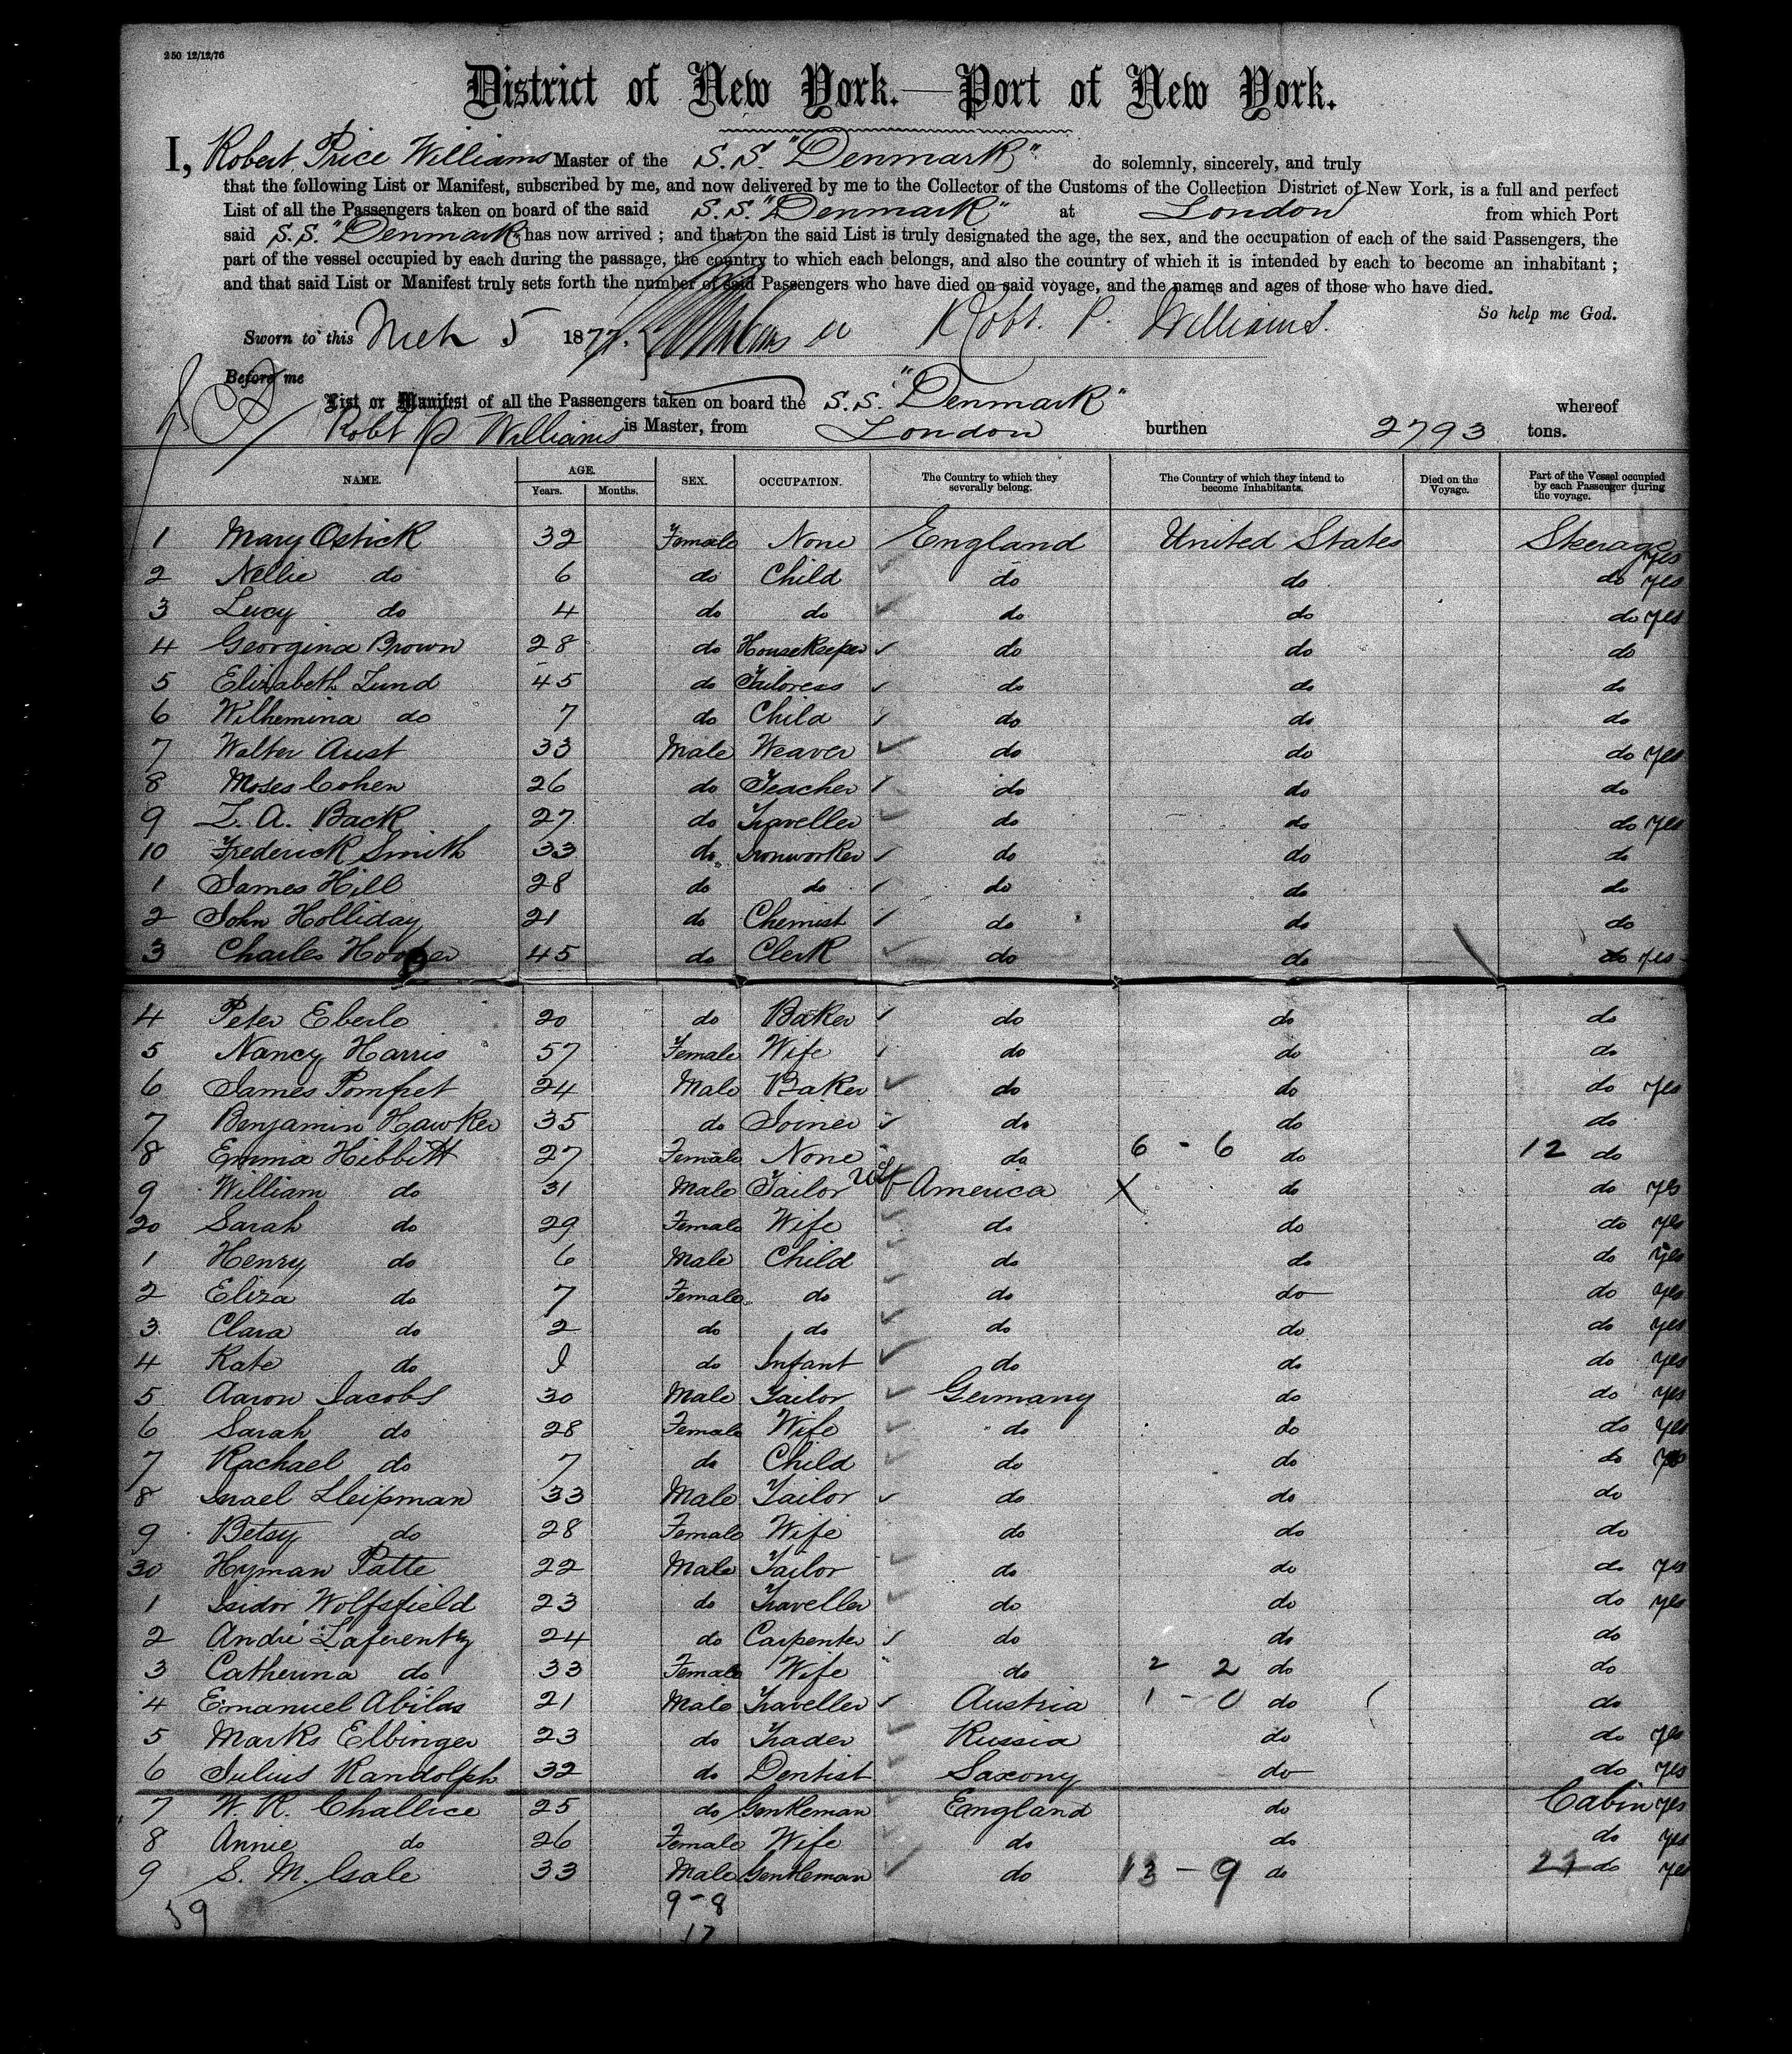 250 12/12/76
District of New York.—Port of New York.
I, Robert Price Williams Master of the S.S. "Denmark" do solemnly, sincerely, and truly
that the following List or Manifest, subscribed by me, and now delivered by me to the Collector of the Customs of the Collection District of New York, is a full and perfect
List of all the Passengers taken on board of the said S.S. "Denmark" at London from which Port
said S.S. "Denmark" has now arrived ; and that on the said List is truly designated the age, the sex, and the occupation of each of the said Passengers, the
part of the vessel occupied by each during the passage, the country to which each belongs, and also the country of which it is intended by each to become an inhabitant ;
and that said List or Manifest truly sets forth the number of said Passengers who have died on said voyage, and the names and ages of those who have died.
So help me God.
Sworn to this Mch 5 1877. Robt. P. Williams.
Before me
List or Manifest of all the Passengers taken on board the S.S. "Denmark" whereof
Robt P Williams is Master, from London burthen 2793 tons.
NAME. AGE. Years. Months. SEX. OCCUPATION. The Country to which they severally belong. The Country of which they intend to become Inhabitants. Died on the Voyage. Part of the Vessel occupied by each Passenger during the voyage.
1 Mary Ostick 32 Female None England United States Steerage yes
2 Nellie do 6 do Child do do do yes
3 Lucy do 4 do do do do do yes
4 Georgina Brown 28 do Housekeeper do do do
5 Elizabeth Lund 45 do Tailoress do do do
6 Wilhemina do 7 do Child do do do
7 Walter Aust 33 Male Weaver do do do yes
8 Moses Cohen 26 do Teacher do do do
9 L. A. Back 27 do Traveller do do do yes
10 Frederick Smith 33 do Ironworker do do do
1 James Hill 28 do do do do do
2 John Holliday 21 do Chemist do do do
3 Charles Hooper 45 do Clerk do do do yes
4 Peter Eberle 20 do Baker do do do
5 Nancy Harris 57 Female Wife do do do
6 James Pomfret 24 Male Baker do do do yes
7 Benjamin Hawker 35 do Joiner do do do
8 Emma Hibbitt 27 Female None do 6 - 6 do 12 do
9 William do 31 Male Tailor America X do do yes
20 Sarah do 29 Female Wife do do do yes
1 Henry do 6 Male Child do do do yes
2 Eliza do 7 Female do do do do yes
3 Clara do 2 do do do do do yes
4 Kate do do Infant do do do yes
5 Aaron Jacobs 30 Male Tailor Germany do do yes
6 Sarah do 28 Female Wife do do do yes
7 Rachael do 7 do Child do do do yes
8 Israel Sleipman 33 Male Tailor do do do
9 Betsy do 28 Female Wife do do do
30 Hyman Patte 22 Male Tailor do do do yes
1 Isidor Wolfsfield 23 do Traveller do do do yes
2 André 24 do Carpenter do do do
3 Catherina do 33 Female Wife do 2 2 do do
4 Emanuel Abilas 21 Male Traveller Austria 1 - 0 do do
5 Marks Elbinger 23 do Trader Russia do do yes
6 Julius Randolph 32 do Dentist Saxony do do yes
7 W. R. Challice 25 do Gentleman England do Cabin yes
8 Annie do 26 Female Wife do do do yes
9 S. M. Gale 33 Male Gentleman do 13 - 9 do do yes
39 9-8
17